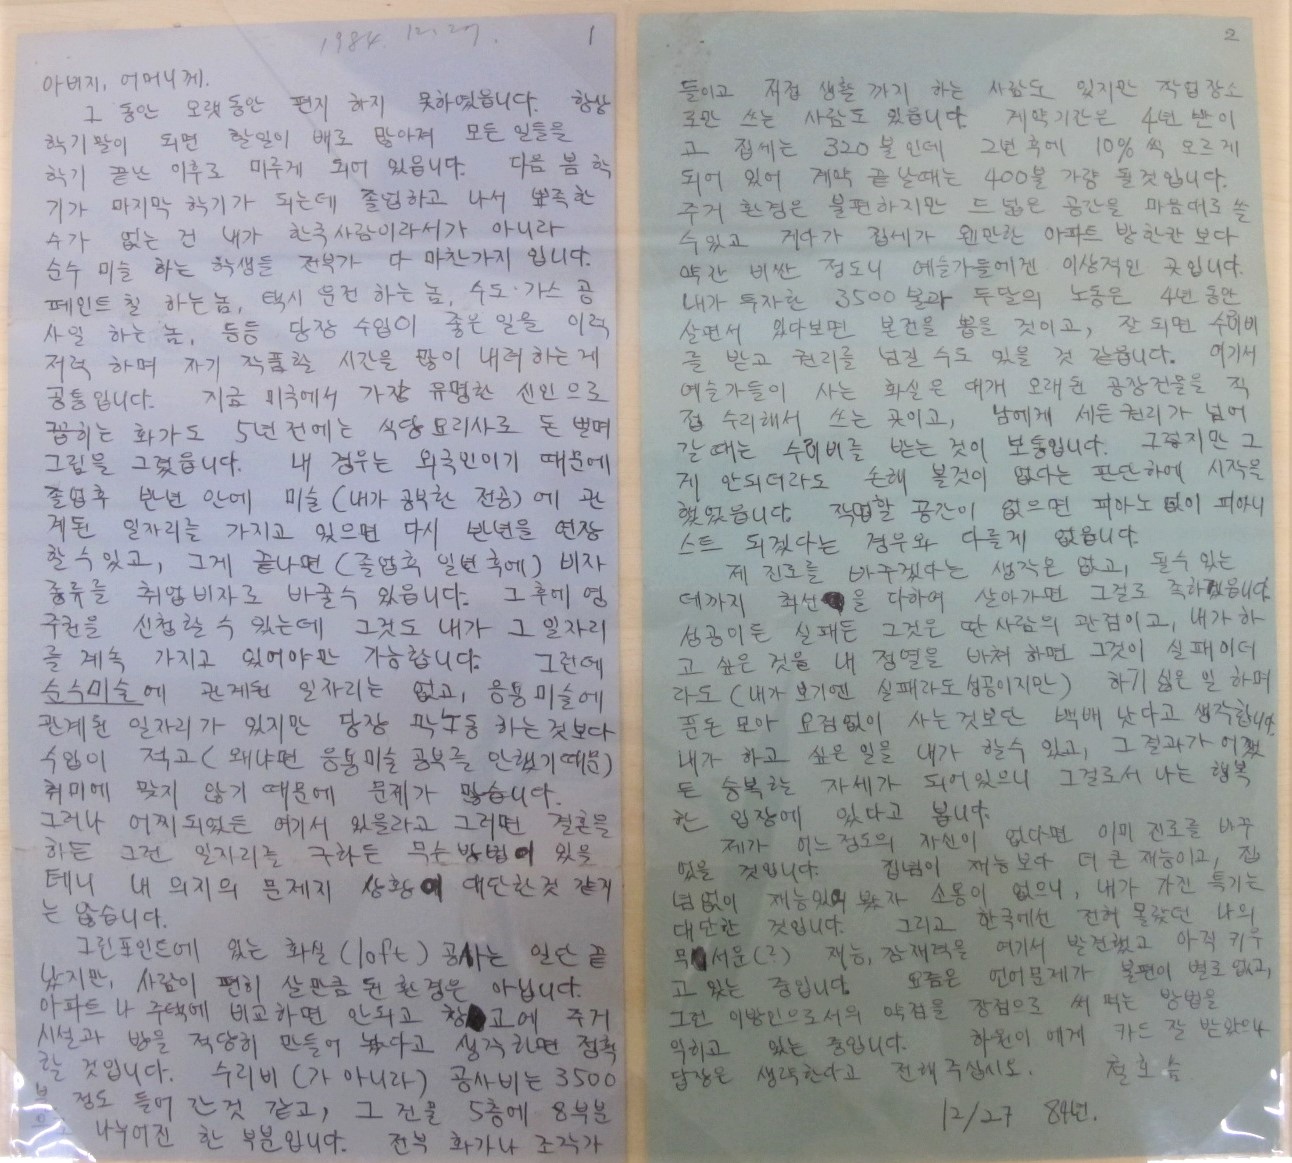 1984. 12. 27.
1
아버지, 어머니께.
그 동안 오랫동안 편지 하지 못하였읍니다. 항상
학기말이 되면 할일이 배로 많아져 모든 일들을
학기 끝난 이후로 미루게 되어 있읍니다. 다음 봄 학
기가 마지막 학기가 되는데 졸업하고 나서 뾰족한
수가 없는 건 내가 한국사람이라서가 아니라
순수 미술 하는 학생들 전부가 다 마찬가지 입니다.
페인트 칠 하는 놈, 택시 운전 하는 놈, 수도·가스 공
사일 하는 놈, 등등 당장 수입이 좋은 일을 이럭
저럭 하며 자기 작품할 시간을 많이 내려 하는 게
공통입니다. 지금 미국에서 가장 유명한 신인으로
꼽히는 화가도 5년 전에는 식당 요리사로 돈 벌며
그림을 그렸읍니다. 내 경우는 외국인이기 때문에
졸업후 반년 안에 미술 (내가 공부한 전공) 에 관
계된 일자리를 가지고 있으면 다시 반년을 연장
할 수 있고, 그게 끝나면 (졸업후 일년 후에) 비자
종류를 취업비자로 바꿀 수 있읍니다. 그 후에 영
주권을 신청할 수 있는데 그것도 내가 그 일자리
를 계속 가지고 있어야만 가능합니다. 그런데
순수미술에 관계된 일자리는 없고, 응용미술에
관계된 일자리가 있지만 당장 막노동 하는것보다
수입이 적고 (왜냐면 응용미술 공부를 안했기 때문)
취미에 맞지 않기 때문에 문제가 많습니다.
그러나 어찌되었든 여기서 있을라고 그러면 결혼을
하든 그런 일자리를 구하든 무슨 방법이 있을
테니 내 의지의 문제지 상황이 대단한것 같지
는 않습니다.
그린포인트에 있는 화실 (loft) 공사는 일단 끝
났지만, 사람이 편히 살만큼 된 환경은 아닙니다.
아파트나 주택에 비교하면 안되고 창고에 주거
시설과 방을 적당히 만들어 놨다고 생각하면 정확
할 것입니다. 수리비 (가 아니라) 공사비는 3500
불 정도 들어 간것 같고, 그 건물 5층에 8부분
으로 나누어진 한 부분입니다. 전부 화가나 조각가
2
들이고 직접 생활 까지 하는 사람도 있지만 작업장소
로만 쓰는 사람도 있읍니다. 계약기간은 4년 반이
고 집세는 320불 인데 2년 후에 10% 씩 오르게
되어 있어 계약 끝날때는 400불 가량 될것입니다.
주거 환경은 불편하지만 드넓은 공간을 마음대로 쓸
수있고 게다가 집세가 웬만한 아파트 방한칸 보다
약간 비싼 정도니 예술가들에겐 이상적인 곳입니다.
내가 투자한 3500불과 두달의 노동은 4년 동안
살면서 있다보면 본전을 뽑을 것이고, 잘 되면 수리비
를 받고 권리를 넘길 수도 있을 것 같읍니다. 여기서
예술가들이 사는 화실은 대개 오래된 공장건물을 직
접 수리해서 쓰는 곳이고, 남에게 세든 권리가 넘어
갈 때는 수리비를 받는 것이 보통입니다. 그렇지만 그
게 안되더라도 손해 볼것이 없다는 판단하에 시작을
했었읍니다. 작업할 공간이 없으면 피아노 없이 피아니
스트 되겠다는 경우와 다를게 없읍니다.
제 진로를 바꾸겠다는 생각은 없고, 될수 있는
데까지 최선을 다하여 살아가면 그걸로 족하겠읍니다.
성공이든 실패든 그것은 딴 사람의 관점이고, 내가 하
고 싶은 것을 내 정열을 바쳐 하면 그것이 실패이더
라도 (내가 보기엔 실패라도 성공이지만) 하기 싫은 일 하며
푼돈 모아 요점없이 사는 것보단 백배 낫다고 생각합니다.
내가 하고 싶은 일을 내가 할수 있고, 그 결과가 어쨌
든 승복하는 자세가 되어있으니 그걸로서 나는 행복
한 입장에 있다고 봅니다.
제가 어느정도의 자신이 없다면 이미 진로를 바꾸
었을 것입니다. 집념이 재능보다 더 큰 재능이고, 집
념없이 재능있어 봤자 소용이 없으니, 내가 가진 특기는
대단한 것입니다. 그리고 한국에선 전혀 몰랐던 나의
무서운(?) 재능, 잠재력을 여기서 발견했고 아직 키우
고 있는 중입니다. 요즘은 언어문제가 불편이 별로 없고,
그런 이방인으로서의 약점을 장점으로 써 먹는 방법을
익히고 있는 중입니다. 하원이 에게 카드 잘 받았으나
답장은 생략한다고 전해 주십시오. 철호 씀
12/27 84년.